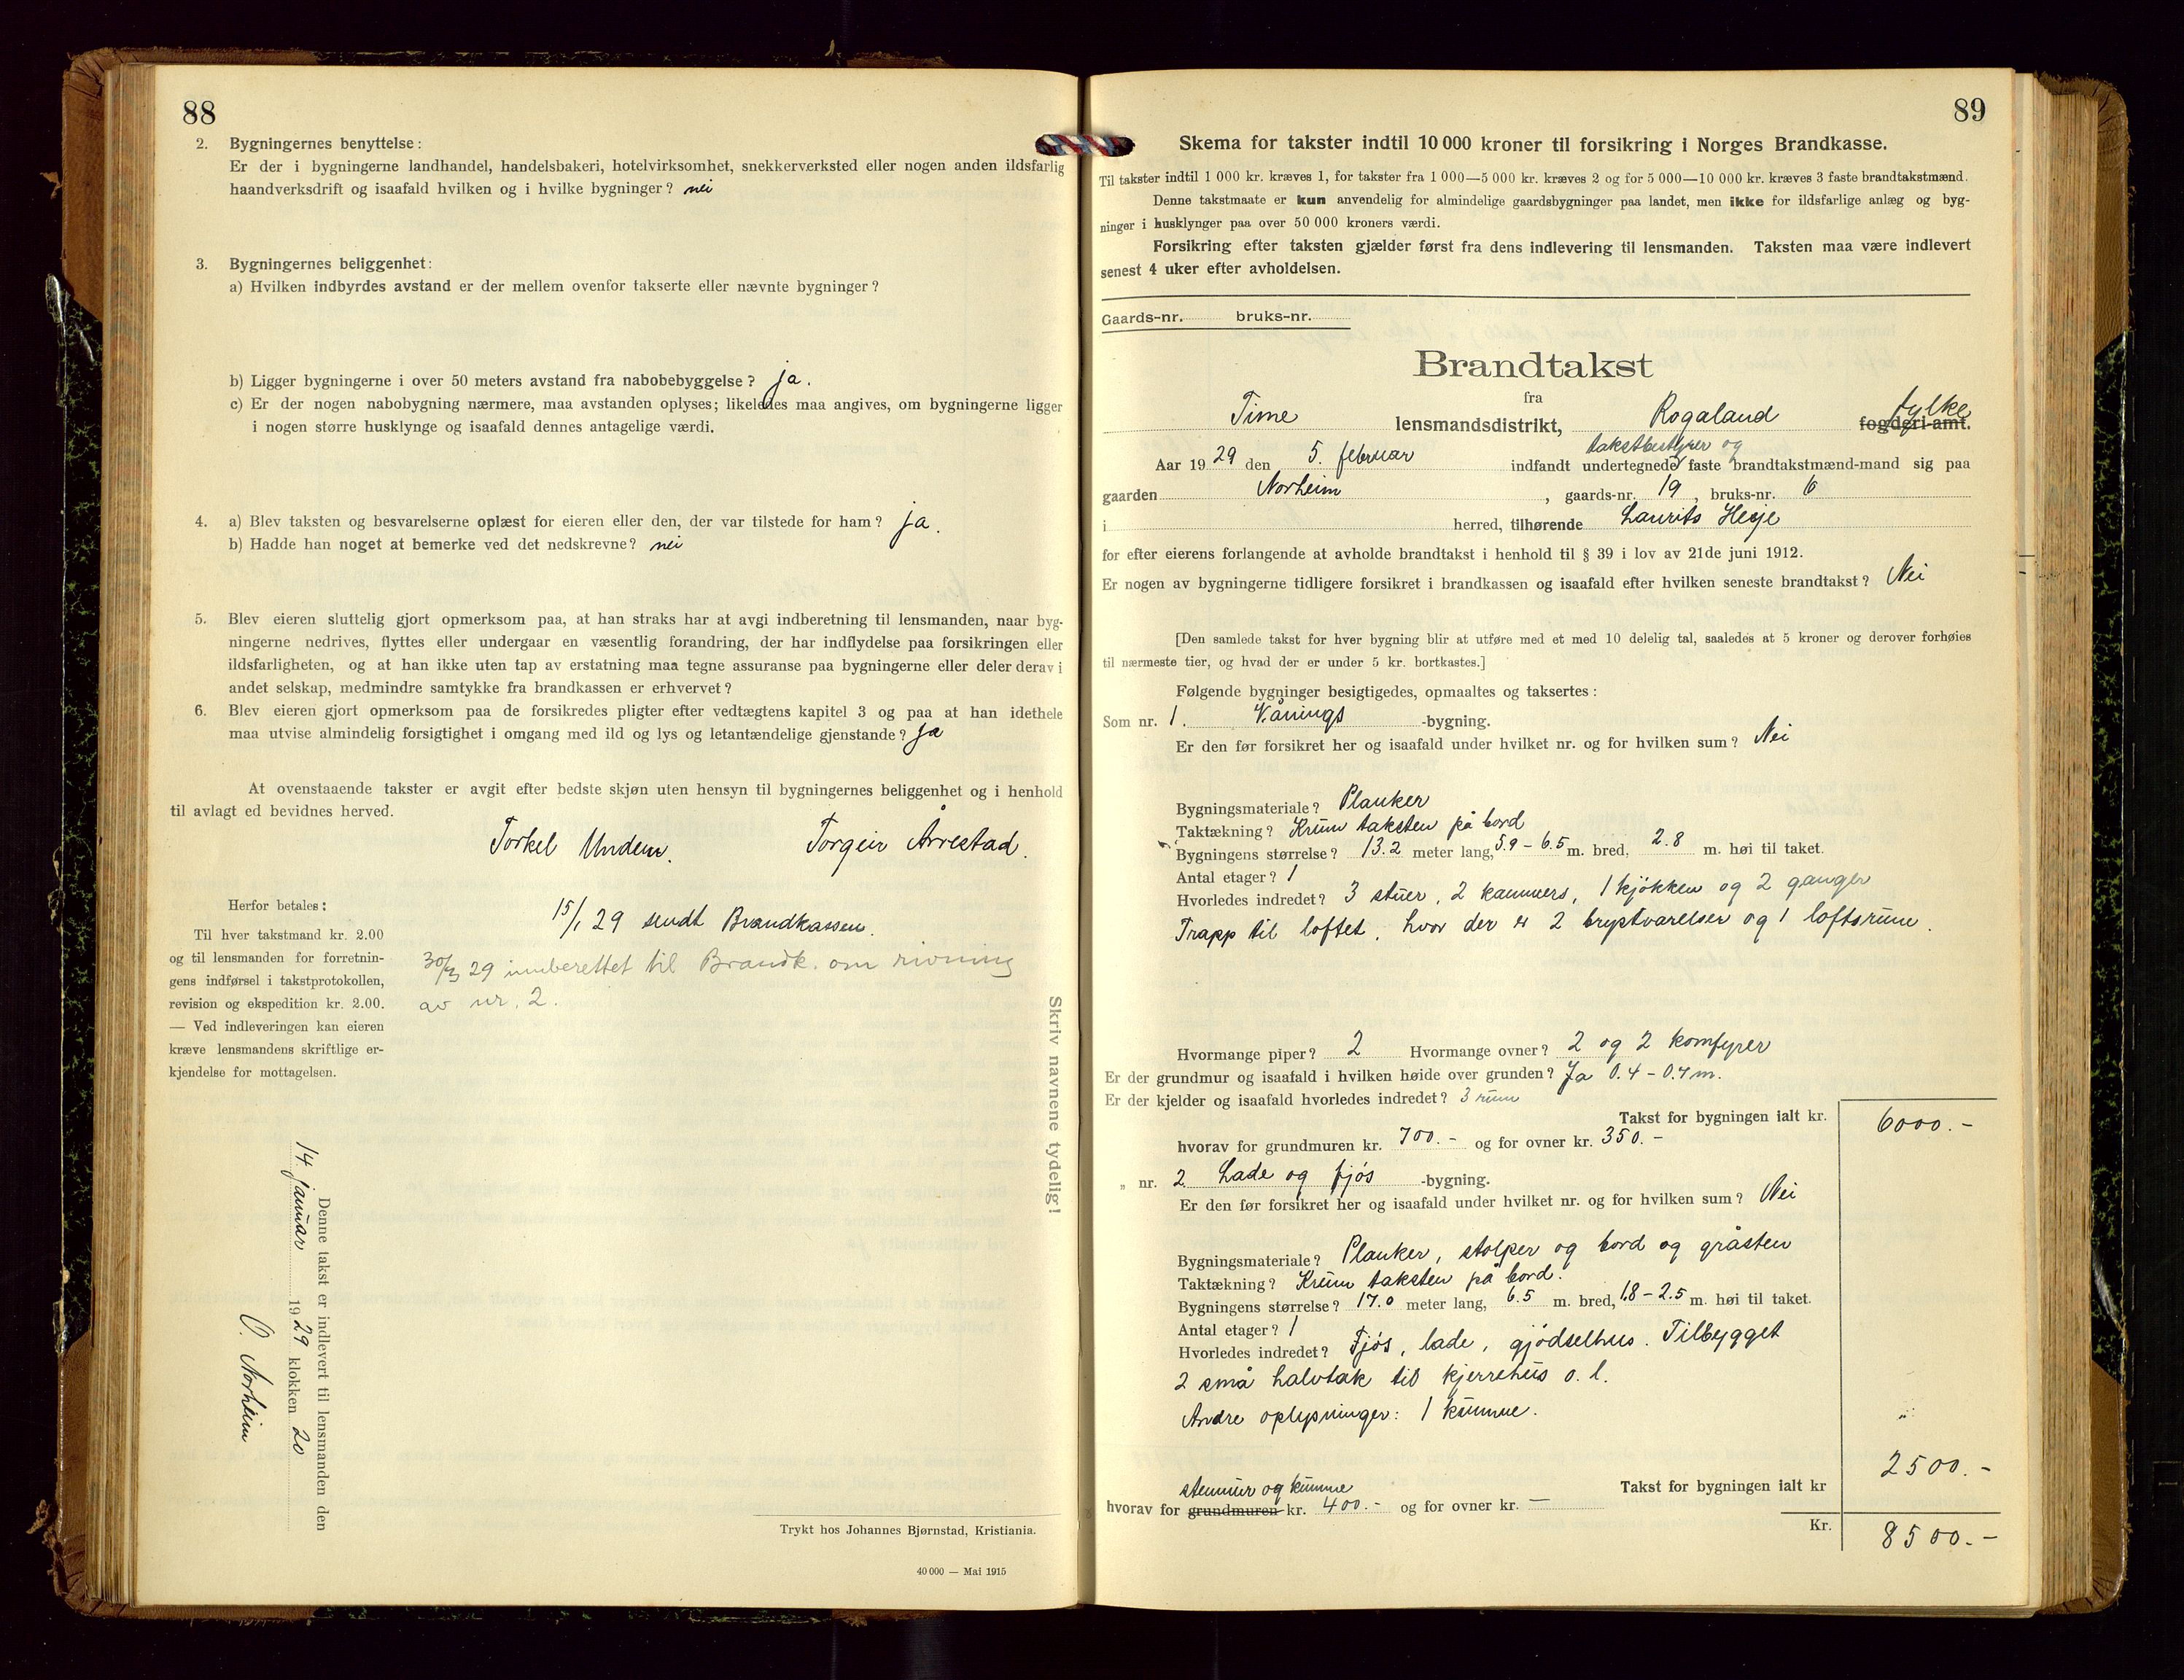 88
2. Bygningernes benyttelse:
Er der i bygningerne landhandel, handelsbakeri, hotelvirksomhet, snekkerverksted eller nogen anden ildsfarlig
haandverksdrift og isaafald hvilken og i hvilke bygninger? nei
3. Bygningernes beliggenhet:
a) Hvilken indbyrdes avstand er der mellem ovenfor takserte eller nævnte bygninger?
b) Ligger bygningerne i over 50 meters avstand fra nabobebyggelse? ja.
c) Er der nogen nabobygning nærmere, maa avstanden oplyses; likeledes maa angives, om bygningerne ligger
i nogen større husklynge og isaafald dennes antagelige værdi.
4. a) Blev taksten og besvarelserne oplæst for eieren eller den, der var tilstede for ham? ja.
b) Hadde han noget at bemerke ved det nedskrevne? nei
5. Blev eieren sluttelig gjort opmerksom paa, at han straks har at avgi indberetning til lensmanden, naar byg-
ningerne nedrives, flyttes eller undergaar en væsentlig forandring, der har indflydelse paa forsikringen eller
ildsfarligheten, og at han ikke uten tap av erstatning maa tegne assuranse paa bygningerne eller deler derav i
andet selskap, medmindre samtykke fra brandkassen er erhvervet?
6. Blev eieren gjort opmerksom paa de forsikredes pligter efter vedtægtens kapitel 3 og paa at han idethele
maa utvise almindelig forsigtighet i omgang med ild og lys og letantændelige gjenstande? ja
At ovenstaaende takster er avgit efter bedste skjøn uten hensyn til bygningernes beliggenhet og i henhold
til avlagt ed bevidnes herved.
Torkel Undem. Torgeir Årrestad.
Herfor betales:
Til hver takstmand kr. 2.00
og til lensmanden for forretnin-
gens indførsel i takstprotokollen,
revision og ekspedition kr. 2.00.
— Ved indleveringen kan eieren
kræve lensmandens skriftlige er-
kjendelse for mottagelsen.
15/1 29 sendt Brandkassen.
30/3 29 innberettet til Brandk. om rivning
av nr. 2.
Skriv navnene tydelig!
Denne takst er indlevert til lensmanden den
14. januar 1929 klokken 20
O. Norheim
Trykt hos Johannes Bjørnstad, Kristiania.
40 000 — Mai 1915
89
Skema for takster indtil 10 000 kroner til forsikring i Norges Brandkasse.
Til takster indtil 1 000 kr. kræves 1, for takster fra 1 000—5 000 kr. kræves 2 og for 5 000—10 000 kr. kræves 3 faste brandtakstmænd.
Denne takstmaate er kun anvendelig for almindelige gaardsbygninger paa landet, men ikke for ildsfarlige anlæg og byg-
ninger i husklynger paa over 50 000 kroners værdi.
Forsikring efter taksten gjælder først fra dens indlevering til lensmanden. Taksten maa være indlevert
senest 4 uker efter avholdelsen.
Gaards-nr. bruks-nr.
Brandtakst
fra
Time lensmandsdistrikt, Rogaland fogderi-amt. fylke
takstbestyrer og
Aar 1929 den 5. februar indfandt undertegnede faste brandtakstmænd-mand sig paa
gaarden Norheim, gaards-nr. 19, bruks-nr. 6
i herred, tilhørende Laurits Hegje
for efter eierens forlangende at avholde brandtakst i henhold til § 39 i lov av 21de juni 1912.
Er nogen av bygningerne tidligere forsikret i brandkassen og isaafald efter hvilken seneste brandtakst? Nei
[Den samlede takst for hver bygning blir at utføre med et med 10 delelig tal, saaledes at 5 kroner og derover forhøies
til nærmeste tier, og hvad der er under 5 kr. bortkastes.]
Følgende bygninger besigtigedes, opmaaltes og taksertes:
Som nr. 1. Vånings-bygning.
Er den før forsikret her og isaafald under hvilket nr. og for hvilken sum? Nei
Bygningsmateriale? Planker
Taktækning? Krum taksten på bord
Bygningens størrelse? 13.2 meter lang, 5.9 - 6.5 m. bred, 2.8 m. høi til taket.
Antal etager? 1
Hvorledes indredet? 3 stuer, 2 kammers, 1 kjøkken og 2 ganger
Trapp til loftet, hvor der er 2 brystvarelser og 1 loftsrum.
Hvormange piper? 2 Hvormange ovner? 2 og 2 komfyrer
Er der grundmur og isaafald i hvilken høide over grunden? Ja 0.4 - 0.7 m.
Er der kjelder og isaafald hvorledes indredet? 3 rum
Takst for bygningen ialt kr. 6000.-
hvorav for grundmuren kr. 700.- og for ovner kr. 350.-
„ nr. 2 Lade og fjøs-bygning.
Er den før forsikret her og isaafald under hvilket nr. og for hvilken sum? Nei
Bygningsmateriale? Planker, stolper og bord og gråsten
Taktækning? Krum taksten på bord.
Bygningens størrelse? 17.0 meter lang, 6.5 m. bred, 1.8 - 2.5 m. høi til taket.
Antal etager? 1
Hvorledes indredet? Fjøs, lade, gjødselhus. Tilbygget
2 små halvtak til kjerrehus o. l.
Andre oplysninger: 1 kumme.
stenmur og kumme Takst for bygningen ialt kr 2500.-
hvorav for grundmuren kr. 400.- og for ovner kr. —
Kr. 8500.-